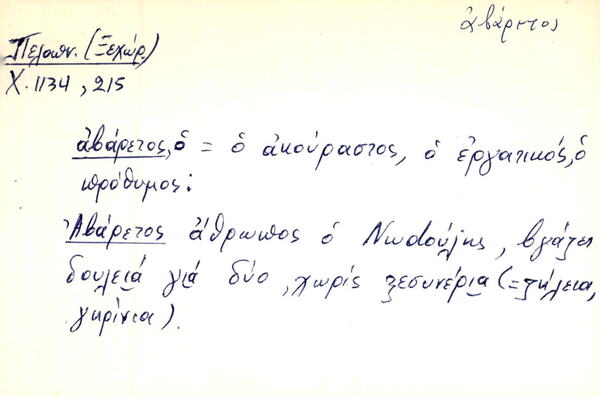 ἀβάρετος
Πελοπν. (Ξεχώρ.)
Χ. 1134, 215
ἀβάρετος, ὁ = ὁ ἀκούραστος, ὁ ἐργατικός, ὁ
πρόθυμος:
Ἀβάρετος ἄθρωπος ὁ, βγάζει
δουλειά γιά δύο, χωρίς ξεσυνέρια (= ζήλεια,
γκρίνια).